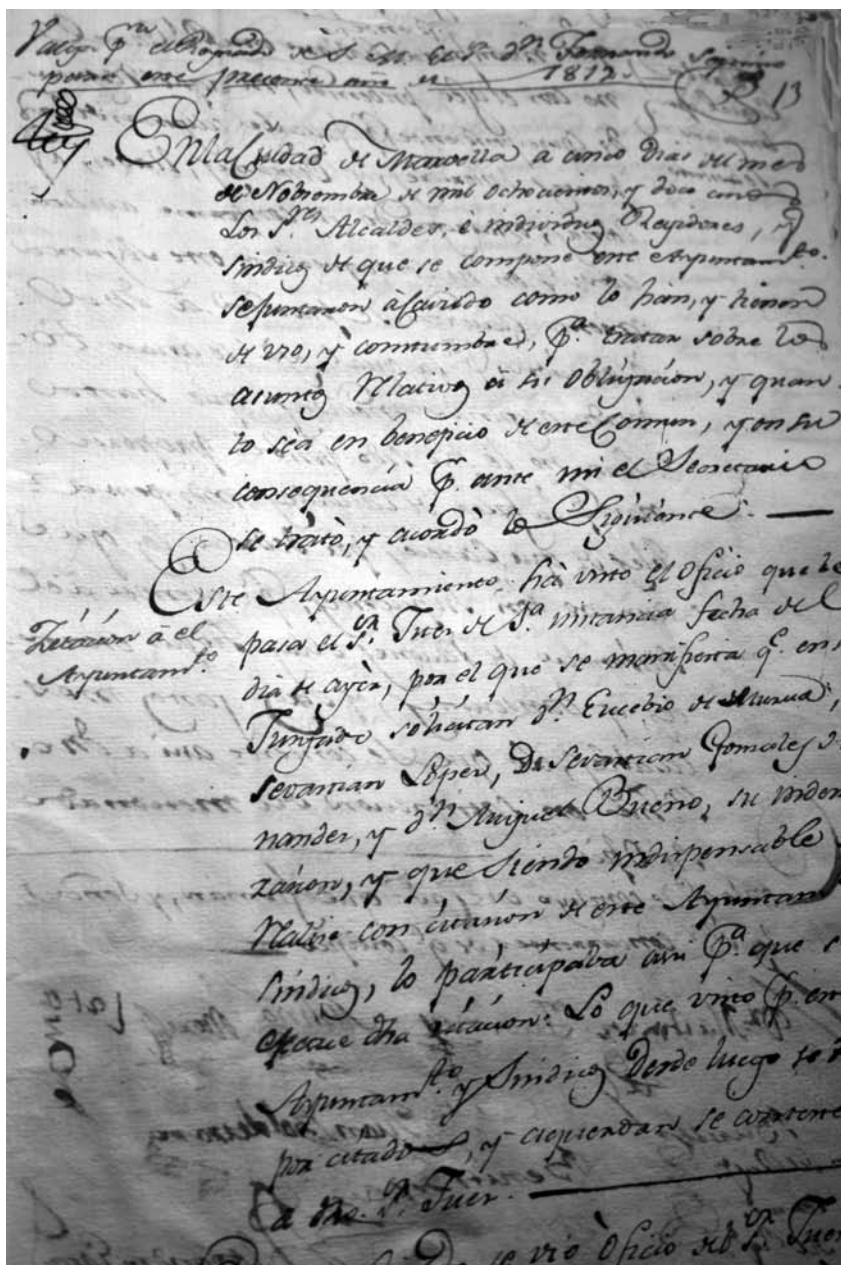 Valga pra el Reynado de S. M. el Sr. Dn. Fernando Septimo
para este presente año de 1812.
13
En la Ciudad de Marvella a cinco dias del mes
de Nobiembre de mil ochocientos, y doce
Los Sres. Alcaldes, è individuos Regidores, y
sindicos de que se compone este Ayuntamto.
se juntaron à Cavildo como lo han, y tienen
de uso, y constumbre, pa. tratar sobre los
asuntos relativos à su obligacion, y quan
to sea en beneficio de este Comun, y en su
consequencia p. ante mi el Secretario
se tratò, y acordò lo Siguiente.
Este Ayuntamiento hà visto el Oficio que le
Zitacion à el
Ayuntamto.
pasa el Sr. Juez de 1a. instancia fecha del
dia de ayèr, por el que se manifiesta qe. en s
Juzgado solicitan Dn. Eucebio de Murua,
Sevastian Lopez, Dn. Sevastian Gonzales
nandez, y Dn. Miguel Bueno, su indem
zacion, y que siendo indispensable
con citacion de este Ayuntam
sindicos, lo participaba asi pa. que s
dha citacion: Lo que visto p. este
Ayuntamto. y Sindicos Desde luego se
por citados, y acuerdan se conteste
a dho. Sr. Juez.
se vio Oficio del Sr. Juez